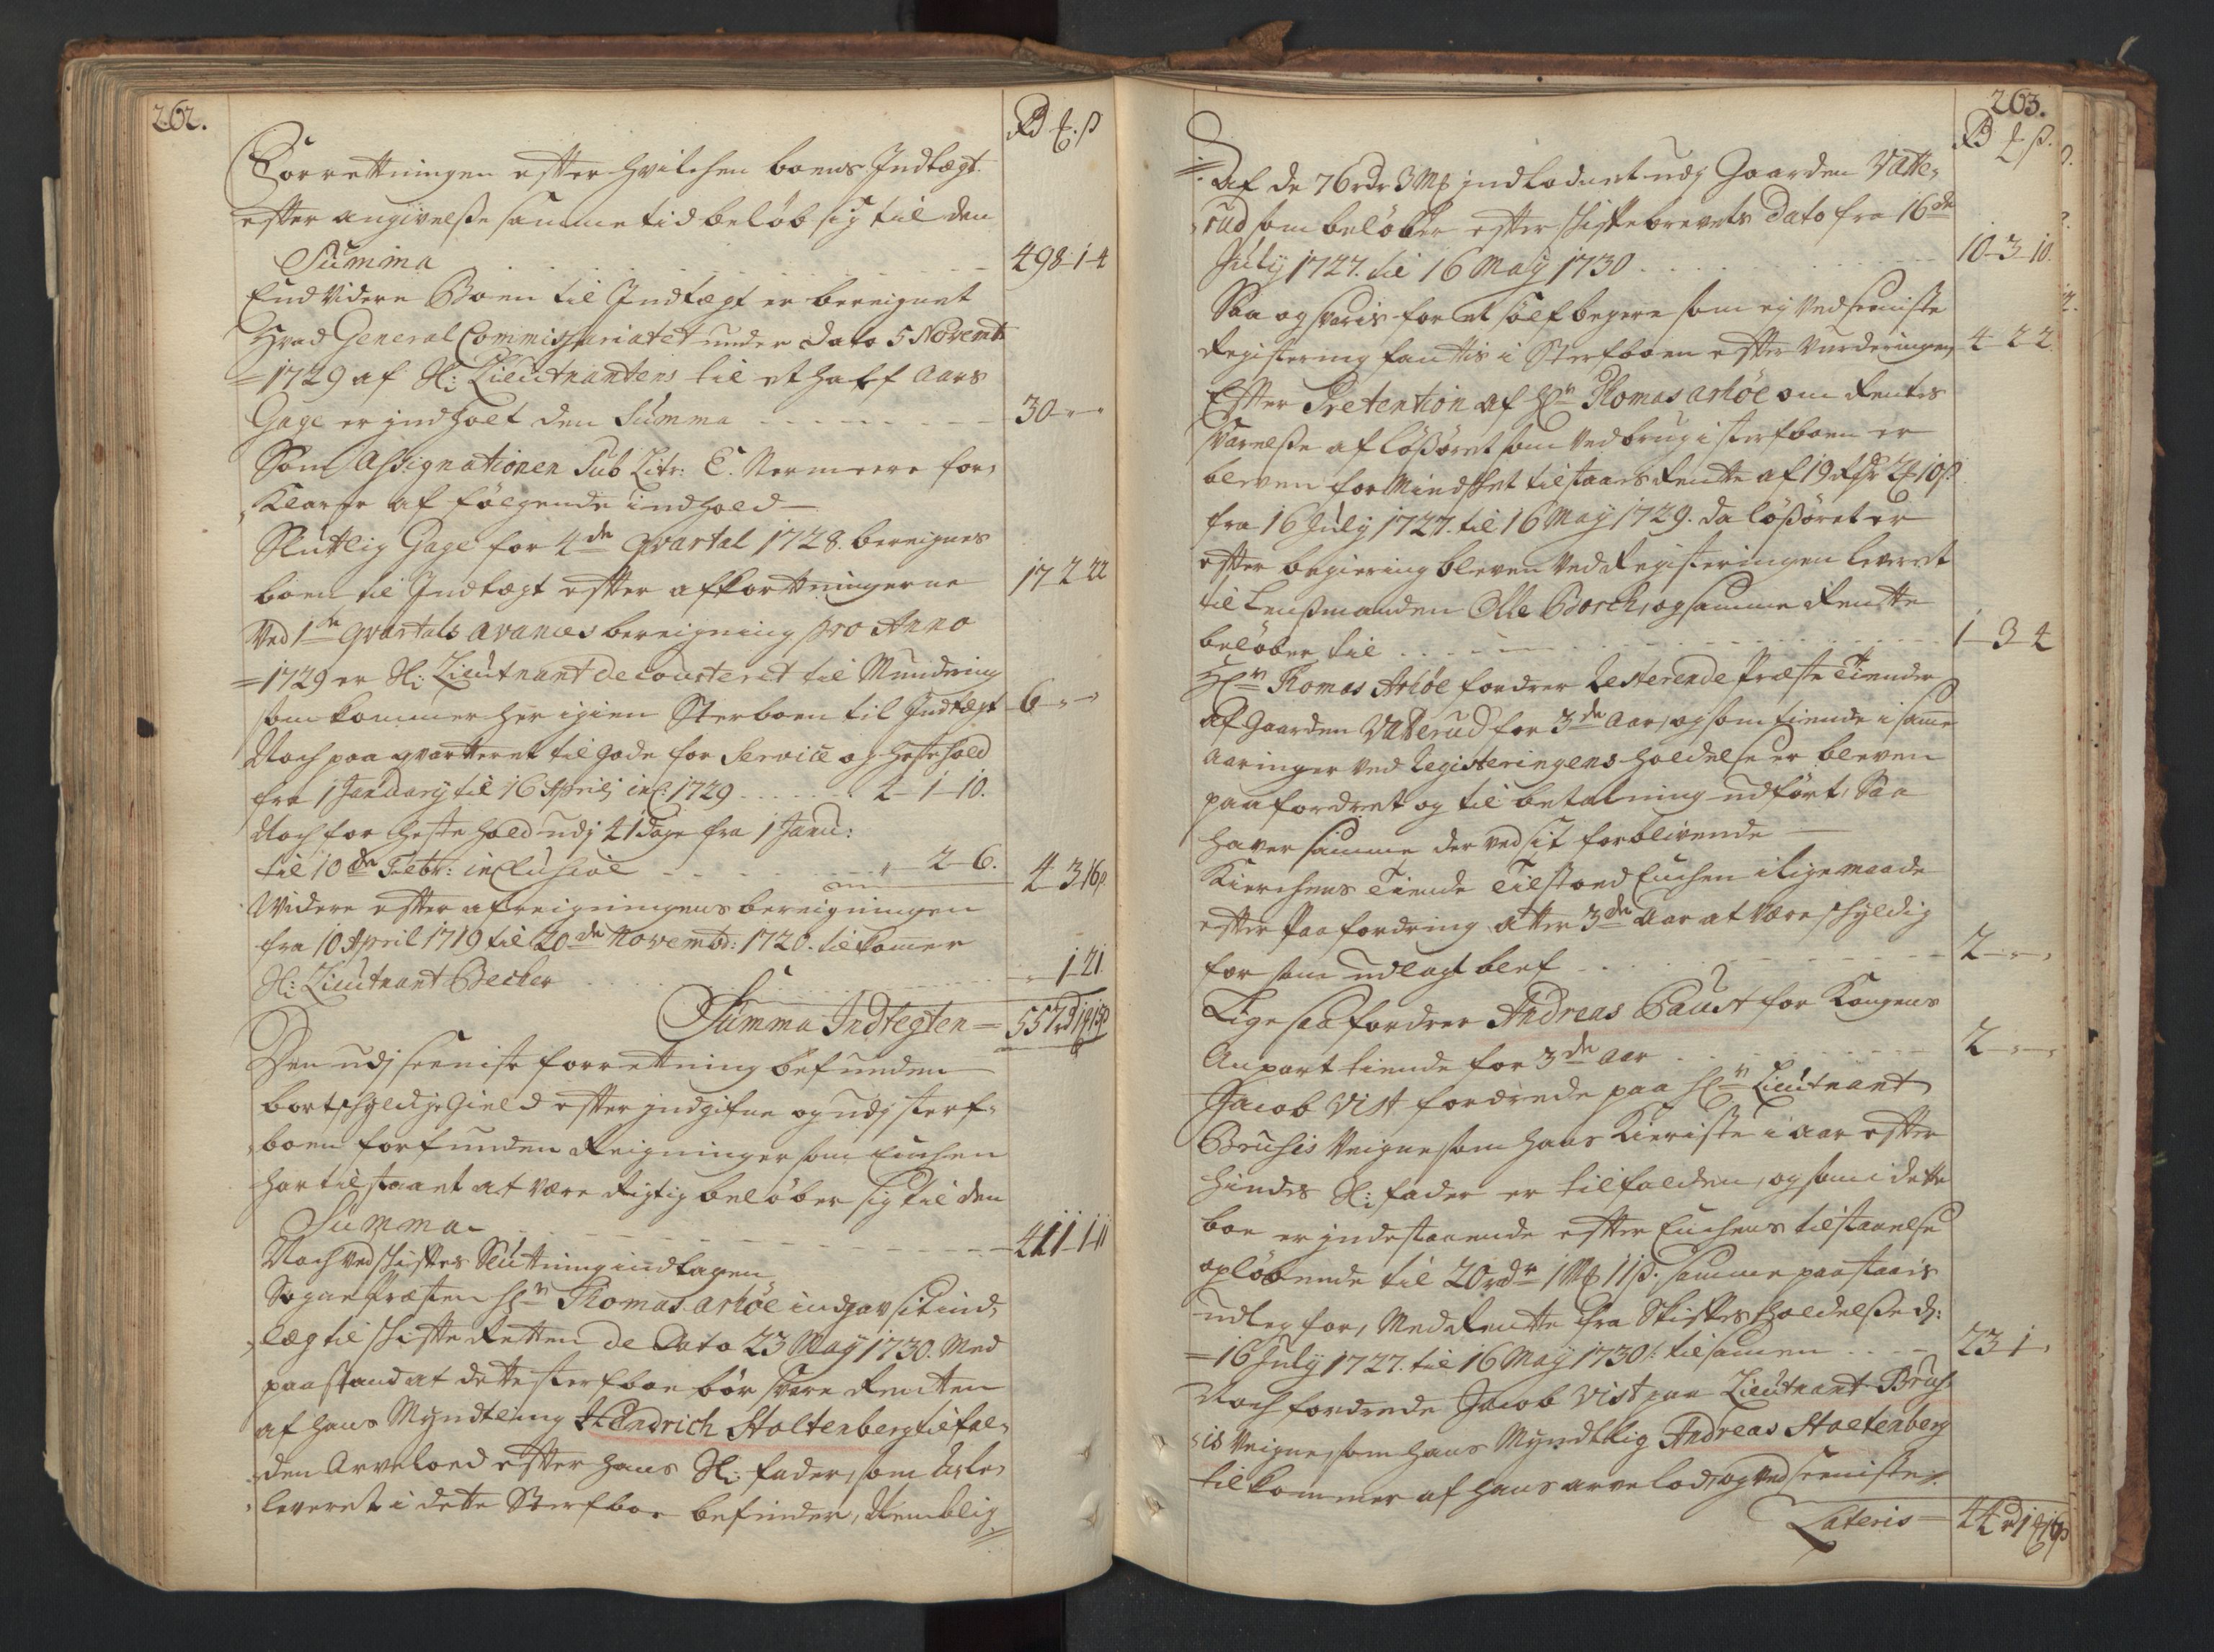 262.
Rd ℔. ß
Forrettningen efter hvilchen boens Indtægt
efter angivelsse samme tid beløb sig til den
Summa 498-1-4
End videre Boen til Indtægt er bereignet
Hvad General Commissariatet under dato 5 Novemb:
=1729 af Sl: Lieutnantens til et half aars
Gage er indholt den Summa 30-"-"
Som Assignationen Sub Litr: C. Nermeere for-
klarer af følgende indhold
Sluttlig Gage for 4de qvartal 1728. bereignes
boen til Indtægt efter afkortningerne 17 2 22
Ved 1te qvartals avances bereigning pro Anno
=1729 er Sl: Lieutnant decourterit til Mundering
som kommer her igien Sterboen til Indtægt 6-"-"
Noch paa qvarteret til gode for Service og hestehold
fra 1 January til 16 Aprily incl: 1729 2-1-10.
Noch for hestehold udj 41 dage fra 1 Janu:
til 10de Febr: inclusive " 2-6. 4-3 16ß
Widere efter afreigningens bereigningen
fra 10 April 1719 til 20de Novembr: 1720. tilkommer
Sl: Lieutnant Becker "-1-21.
Summa Indtegten = 557rd 1 19ß
Den udj seeniste forrettning befunden
bortschyldige Gield efter indgifne og udj sterf-
boen forfunden Reigninger som Enchen
har tilstaaet at være Rigtig beløber sig til den
Summa 411-1-11
Noch ved schiftes Sluttning indtagen
Sognepræsten Hr: Thomas Arhöe indgav sit ind-
læg til schifte Retten de Dato 23 May 1730. Med
paastand at dette sterfboe bør svare Renten
af hans Myndtling Hendrich Stoltenberg tilfal-
den Arvelaad efter hans Sl: fader, som u-
leveret i dette Sterfboe befindes, Nemblig

263.
Rd ℔ ß.
Af de 76rdr 3Mƒ indlodnet udj Gaarden Vatte-
rud som beløber efter schiftebrevets Dato fra 16de
July 1727. til 16 May 1730 10-3-10.
Saa og svaris for et sölfbegere som ej ved seeniste
Registering fantis i Sterfboen efter Vurderingen 4-2-2.
Efter Pretention af Hr: Thomas Arhöe om Rentes
svarelsse af lössöret som ved brug i sterfboen er
bleven formindsket tilstaaes Rentte af 19 Rdr 2 ℔ 10ß
fra 16 July 1727. til 16 May 1729. da lössöret er
efter begiering bleven ved Registeringen leveret
til Lensmanden Olle Borch, og samme Rentte
beløber til 1-3-4
Hr: Thomas Arhöe fordrer Resterende Præste Tiender
af Gaarden Vatterud for 3de Aar, og som tiende i samme
Aaringer ved Registeringens holdelse er bleven
paafordret og til betalning udført, Saa
haver samme der ved sit forblivende
Kierchens Tiende Tilstoed Enchen i lige maade
efter Paafordring atter 3de Aar at være schyldig
for som udlagt blef 2-"-"
Lige saa fordrer Andreas Faust for Kongens
Anpart tiende for 3de Aar 2-"-"
Jacob Vist fordrede paa Hr: Lieutnant
Bruhsis Veigne som hans Kieriste i aar efter
hindes Sl: fader er tilfalden, og som i dette
boe er indestaaende efter Enchens tilstaaelse
opløbende til 20rdr 1Mƒ 11ß. samme paastaais
udleg for, Med Rentte fra Skiftes holdelsse d:
=16 July 1727. til 16 May 1730: tilsamen 23-1-"
Noch fordrede Jacob Vist paa Lieutnant Bruhs-
is Veigne, som hans Myndtlig Andreas Stoltenberg
tilkommer af hans arvelod, og ved seeniste
Lateris = 44rd 1 ℔ 16ß